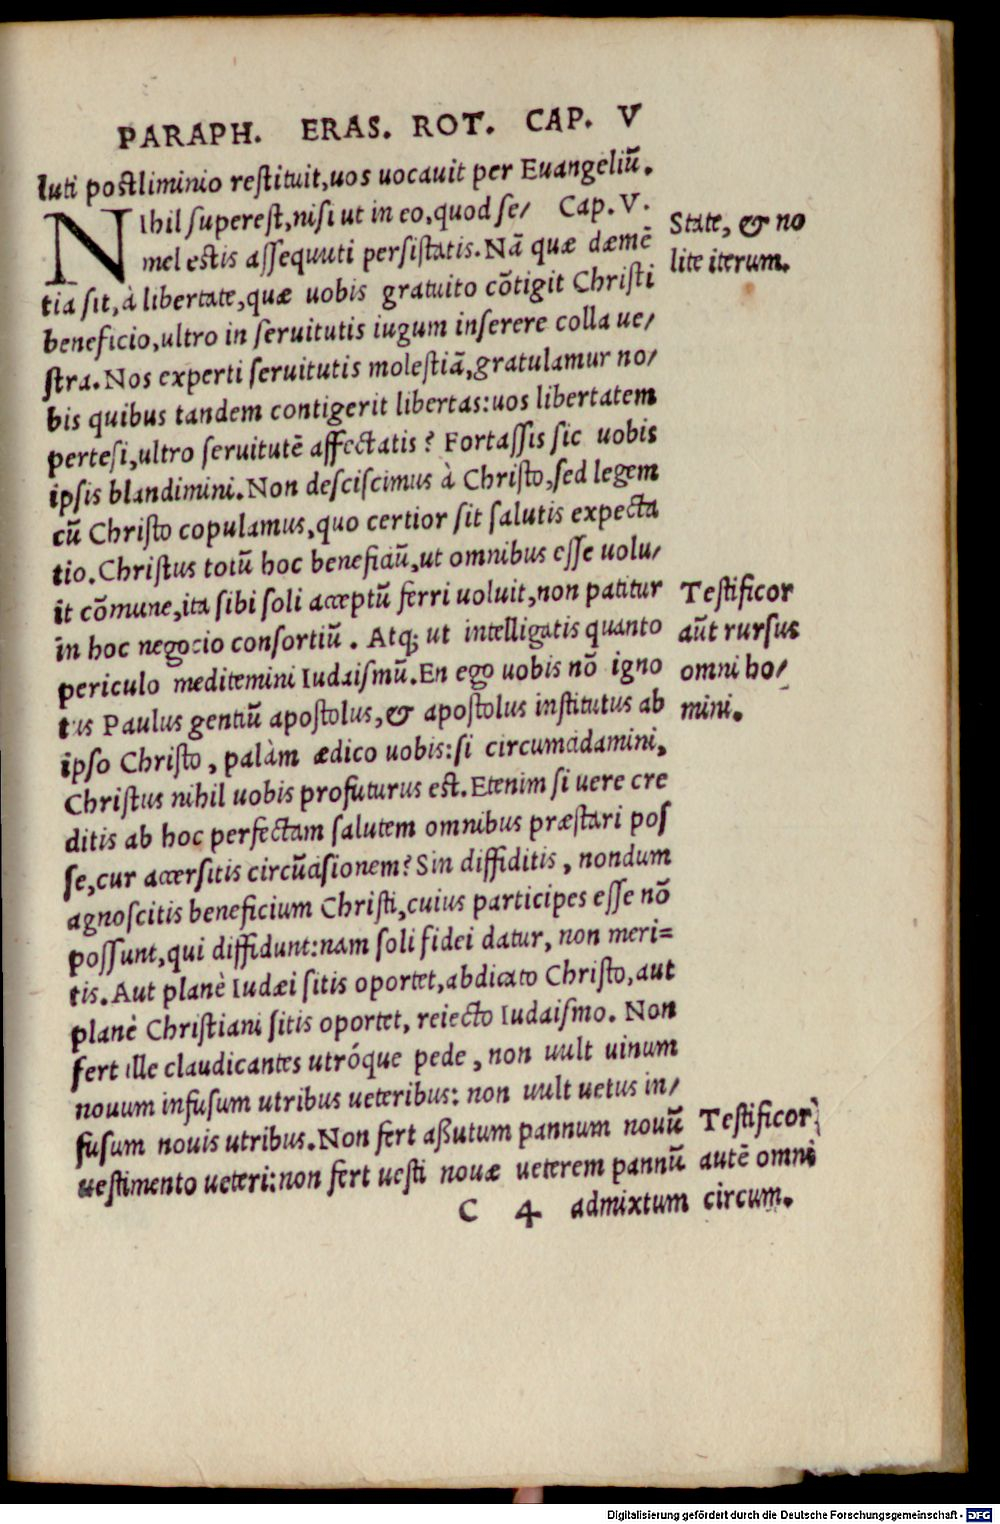 PARAPH. ERAS. ROT. CAP. V
luti postliminio restituit,uos uocauit per Euangeliũ.
NIhil superest,nisi ut in eo,quod se/ Cap. V.
mel estis assequuti persistatis. Nã quæ dæmẽ
tia sit, à libertate,quæ uobis gratuito cõtigit Christi
beneficio,ultro in seruitutis iugum inserere colla ue/
stra. Nos experti seruitutis molestiã,gratulamur no/
bis quibus tandem contigerit libertas:uos libertatem
pertesi,ultro seruitutẽ affectatis? Fortassis sic uobis
ipsis blandimini. Non desciscimus à Christo,sed legem
cũ Christo copulamus,quo certior sit salutis expecta
tio. Christus totũ hoc beneficiũ,ut omnibus esse uolu/
it cõmune,ita sibi soli acceptũ ferri uoluit,non patitur
in hoc negocio consortiũ. Atq; ut intelligatis quanto
periculo meditemini Iudaismũ. En ego uobis nõ igno
tus Paulus gentiũ apostolus,& apostolus institutus ab
ipso Christo, palàm ædico uobis:si circumcidamini,
Christus nihil uobis profuturus est. Etenim si uere cre
ditis ab hoc perfectam salutem omnibus præstari pos
se,cur accersitis circũcisionem? Sin diffiditis, nondum
agnoscitis beneficium Christi,cuius participes esse nõ
possunt,qui diffidunt:nam soli fidei datur, non meri=
tis. Aut planè Iudæi sitis oportet,abdicato Christo,aut
planè Christiani sitis oportet, reiecto Iudaismo. Non
fert ille claudicantes utróque pede, non uult uinum
nouum infusum utribus ueteribus: non uult uetus in/
fusum nouis utribus. Non fert aßutum pannum nouũ
uestimento ueteri:non fert uesti nouæ ueterem pannũ
C 4 admixtum
State, & no
lite iterum.
Testificor
aũt rursus
omni ho/
mini.
Testificor
autẽ omni
circum.
Digitalisierung gefördert durch die Deutsche Forschungsgemeinschaft - DFG